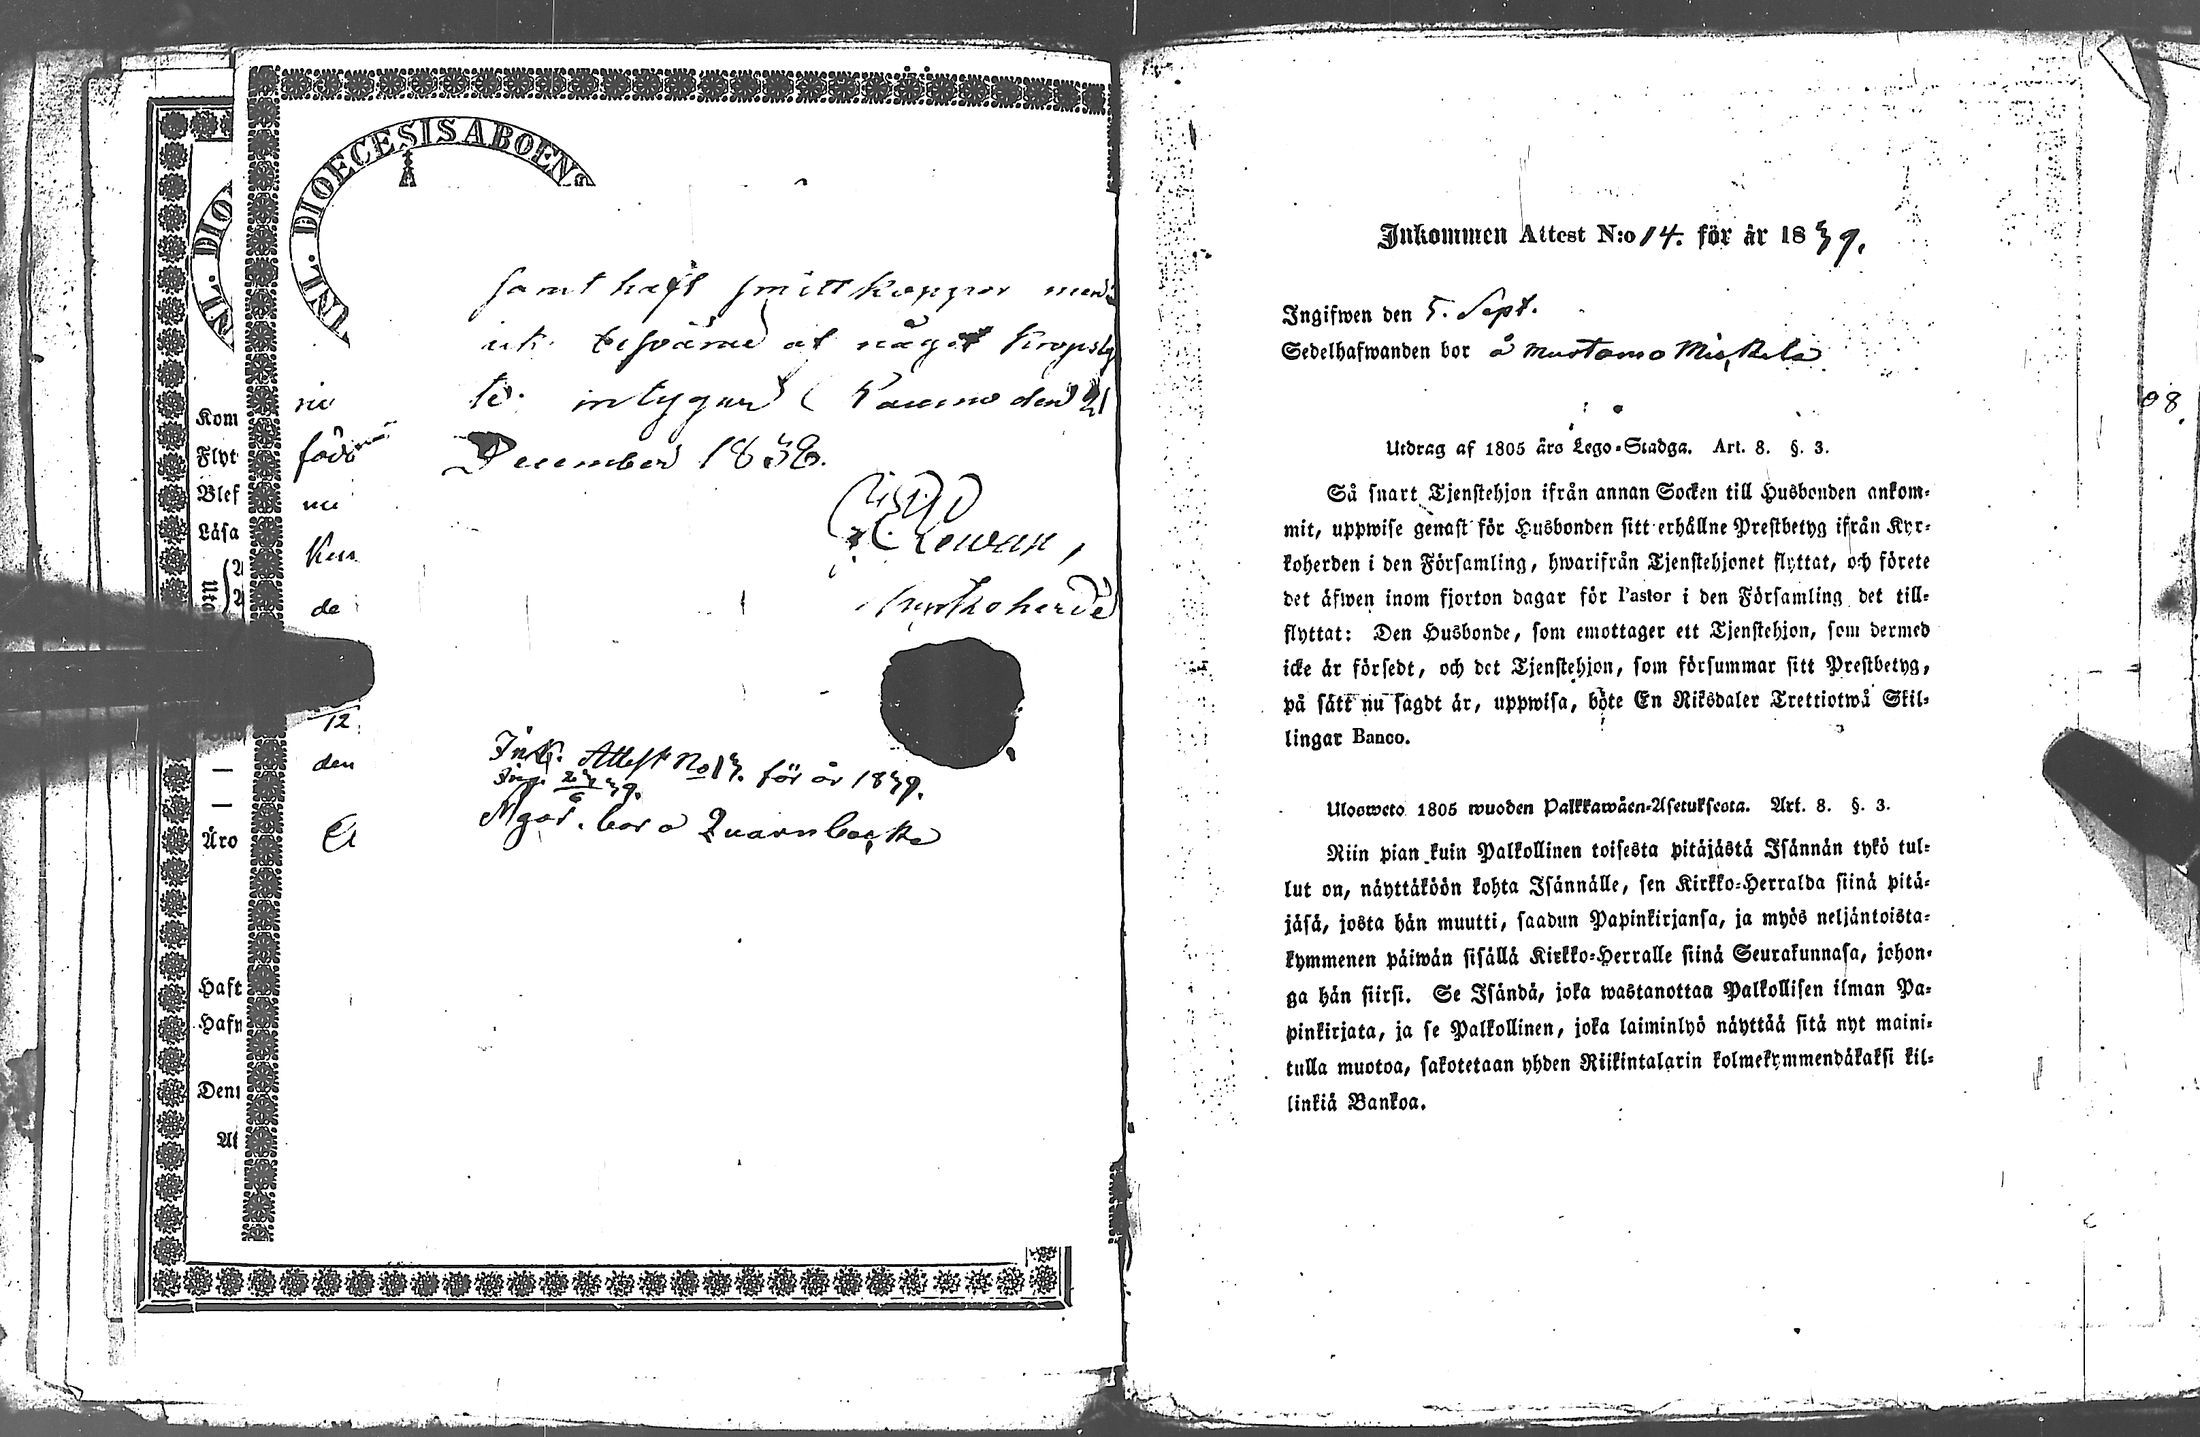 DIOECESIS ABOENS
samt haft smittkoppor men
ick besväras af något kropsly
te intygar Kaumo den 21
December 1838.
Kyrkoherde
Ink. Attest No 13. för år 1839.
bor å Quarnbacka
NL. DIO
Kom
Flyt
Blef
Läsa
Äro
Haft
Hafn
Den
At
föd
de
12
den
Inkommen Attest N:o 14. för år 1839.
Ingifwen den 5. Sept.
Sedelhafwanden bor å Mustamo Mickela
Utdrag af 1805 års Lego-Stadga. Art. 8. §. 3.
Så snart Tjenstehjon ifrån annan Socken till Husbonden ankom-
mit, uppwise genast för Husbonden sitt erhållne Prestbetyg ifrån Kyr-
koherden i den Församling, hwarifrån Tjenstehjonet flyttat, och förete
det äfwen inom fjorton dagar för Pastor i den Församling det till-
flyttat: Den Husbonde, som emottager ett Tjenstehjon, som dermed
icke är försedt, och det Tjenstehjon, som försummar sitt Prestbetyg,
på sätt nu sagdt är, uppwisa, böte En Riksdaler Trettiotwå Skil-
lingar Banco.
Ulosweto 1805 wuoden Palkkawäen-Asetuksesta. Art. 8. §. 3.
Niin pian kuin Palkollinen toisesta pitäjästä Isännän tykö tul-
lut on, näyttäköön kohta Isännälle, sen Kirkko-Herralda siinä pitä-
jäsä, josta hän muutti, saadun Papinkirjansa, ja myös neljäntoista-
kymmenen päiwän sisällä Kirkko-Herralle siinä Seurakunnasa, johon-
ga hän siirsi. Se Isändä, joka wastanottaa Palkollisen ilman Pa-
pinkirjata, ja se Palkollinen, joka laiminlyö näyttää sitä nyt maini-
tulla muotoa, sakotetaan yhden Riikintalarin kolmekymmendäkaksi kil-
linkiä Bankoa.